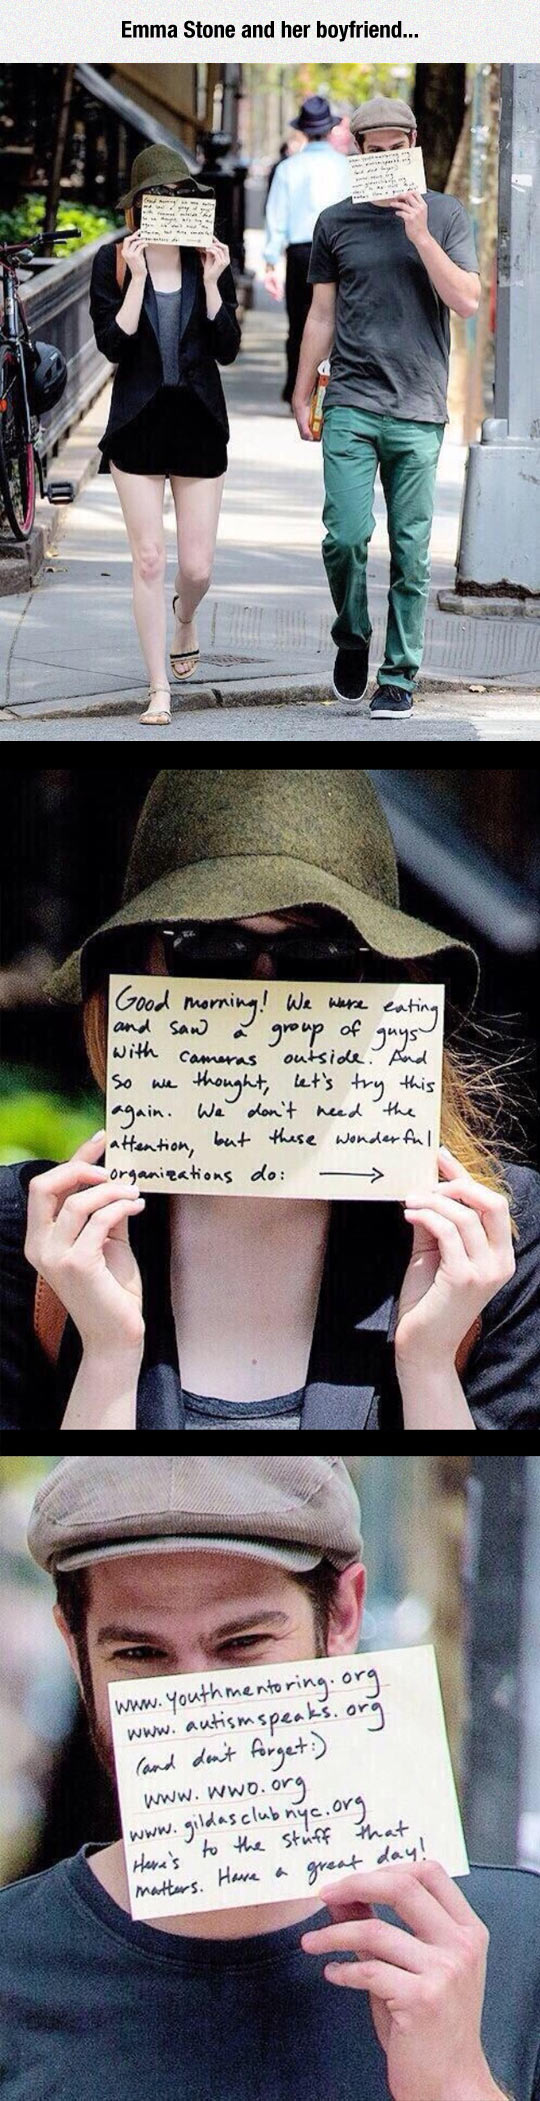 Emma Stone and her boyfriend...
Good morning! We were eating
and saw a group of guys
with cameras outside. And
so we thought, let's try this
again. We don't need the
attention, but these wonderful
organizations do: →
www.youthmentoring.org
www.autismspeaks.org
(and don't forget:)
www.wwo.org
www.gildasclubnyc.org
Here's to the stuff that
matters. Have a great day!